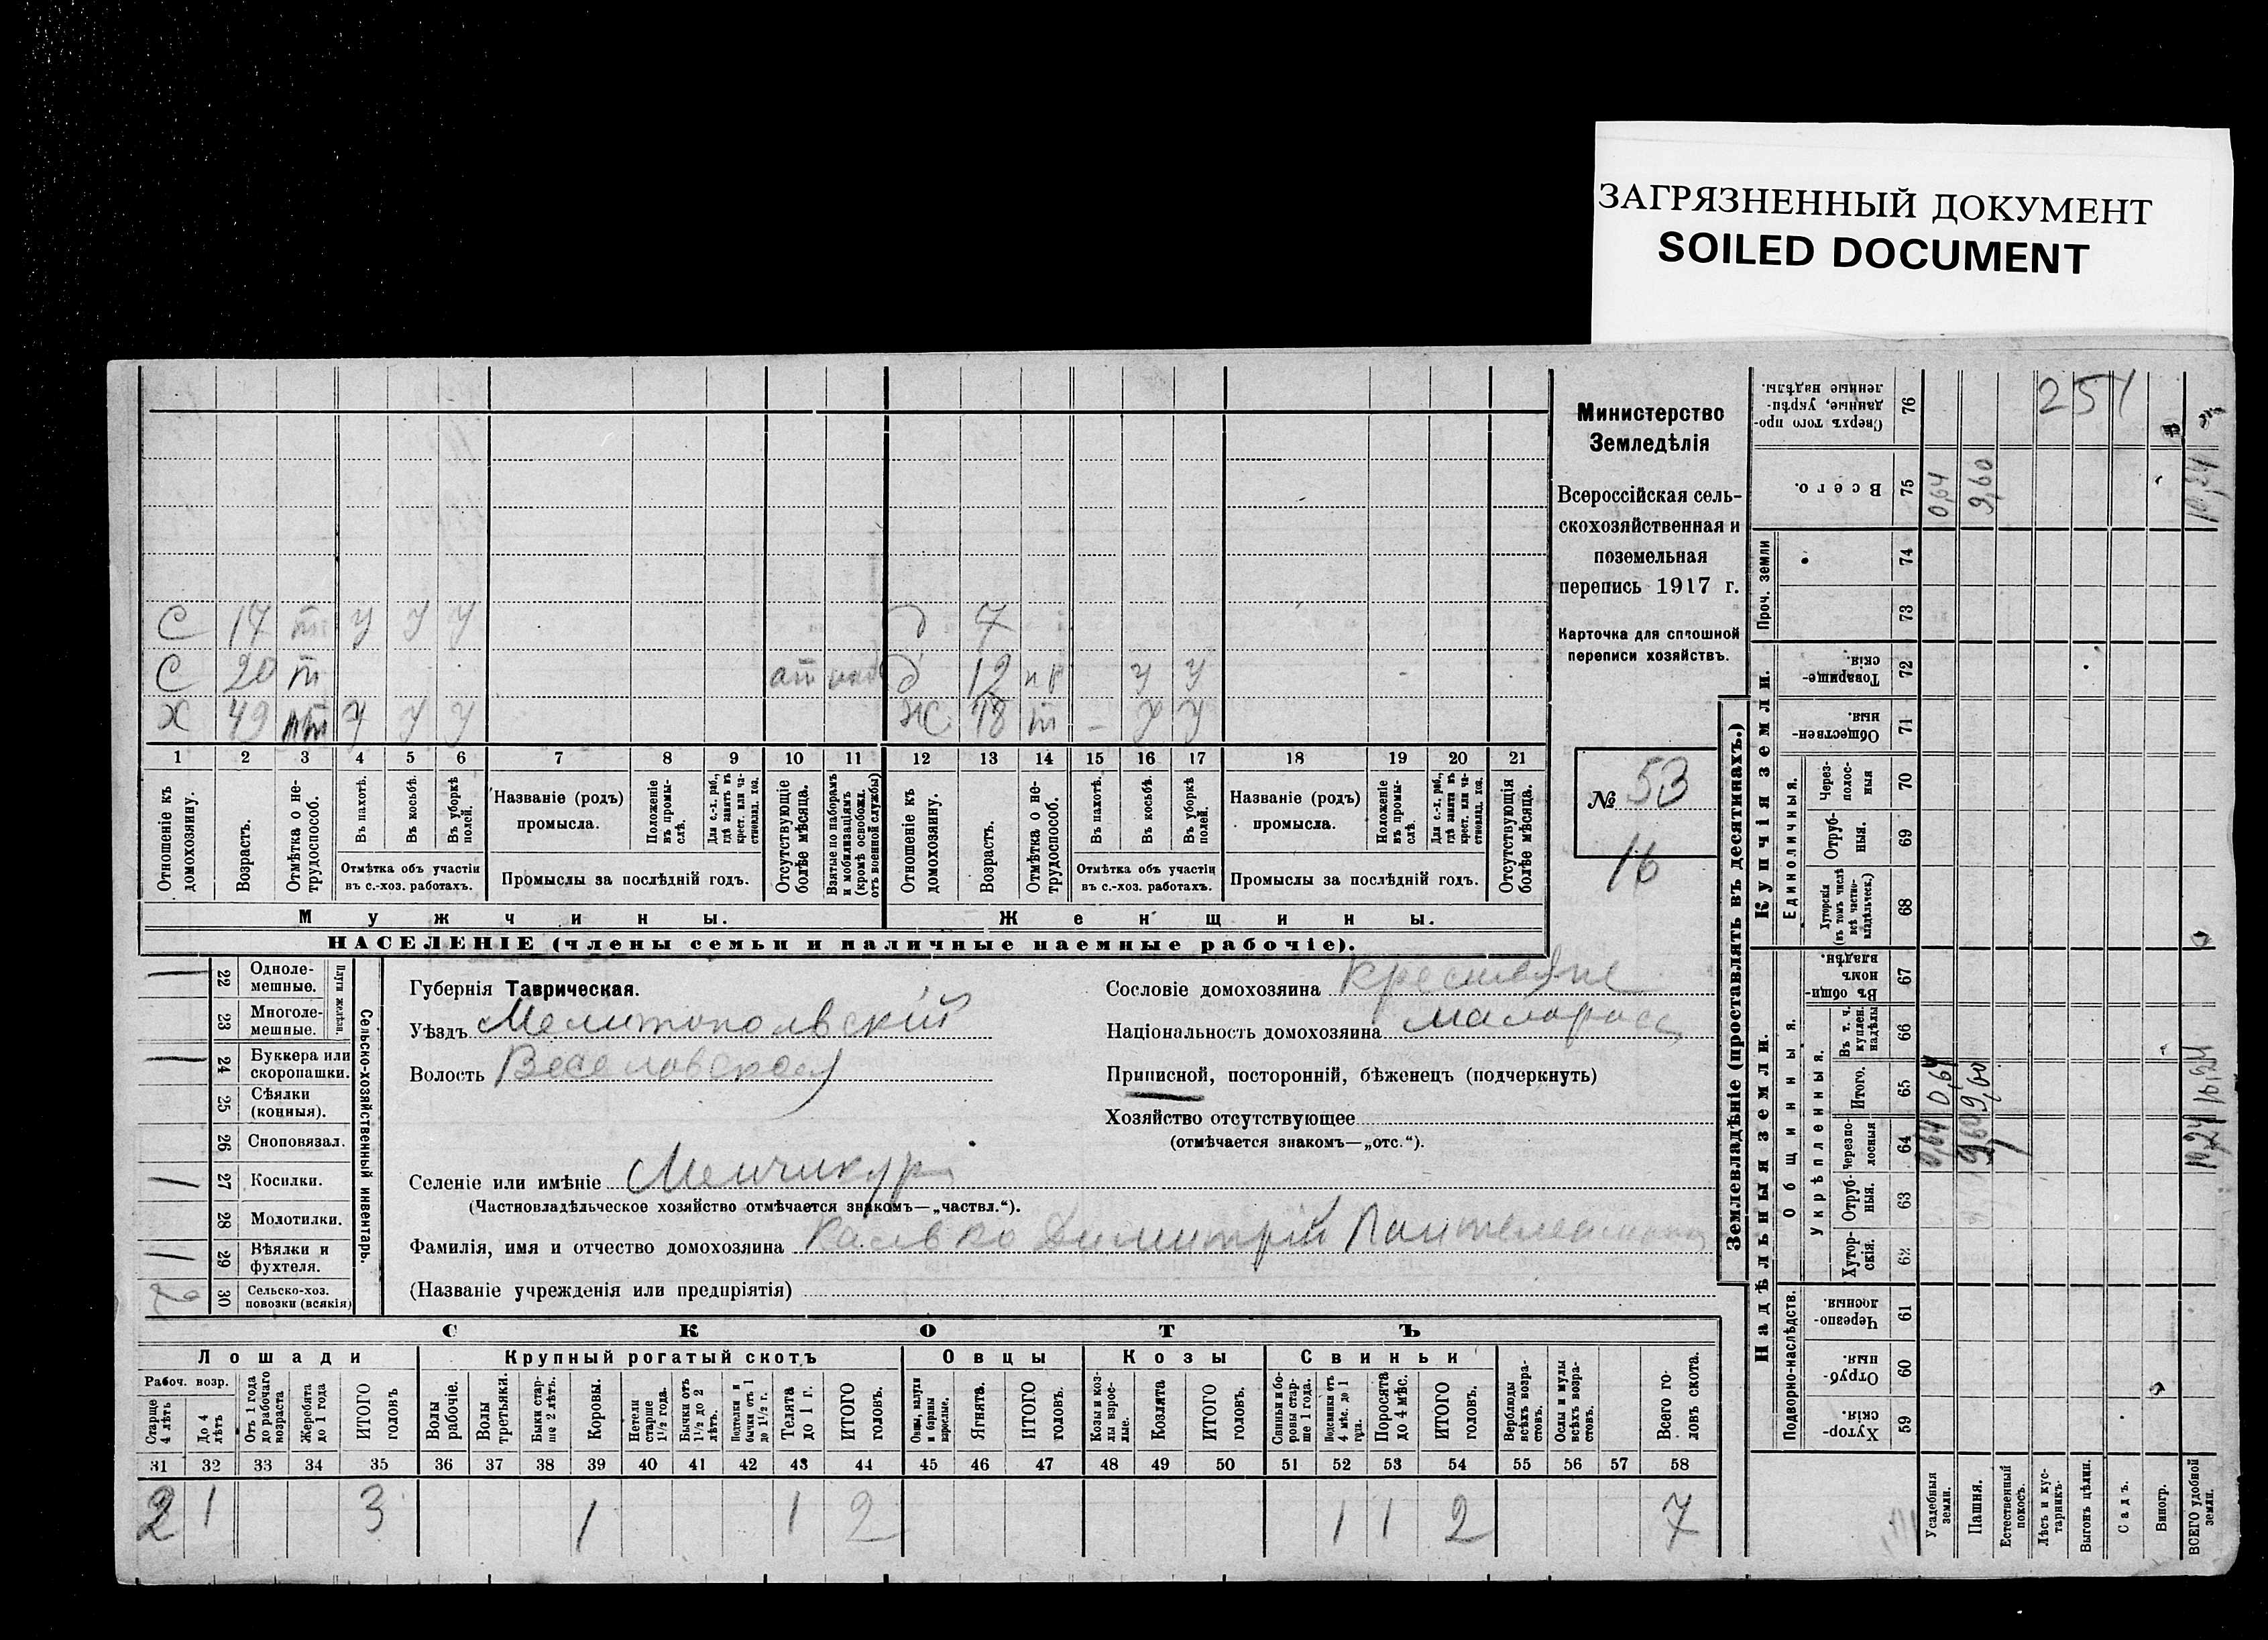 ЗАГРЯЗНЕННЫЙ ДОКУМЕНТ
SOILED DOCUMENT
С 17 т У У У д 7
С 20 т от д 12 нр У У
Х 49 У У У Ж 48 т – У У
1 2 3 4 5 6 7 8 9 10 11 12 13 14 15 16 17 18 19 20 21
Отношеніе къ домохозяину.
Возрастъ.
Отмѣтка о нетрудоспособ.
Въ пахотѣ.
Въ косьбѣ.
Въ уборкѣ полей.
Отмѣтка объ участіи въ с.-хоз. работахъ.
Названіе (родъ) промысла.
Положеніе въ промыслѣ.
Для с.-х. раб., гдѣ занятъ въ крест. или частновлад. хоз.
Промыслы за послѣдній годъ.
Отсутствующіе болѣе мѣсяца.
Взятые по наборамъ и мобилизаціямъ (кромѣ освобожд. отъ военной службы)
Отношеніе къ домохозяину.
Возрастъ.
Отмѣтка о нетрудоспособ.
Въ пахотѣ.
Въ косьбѣ.
Въ уборкѣ полей.
Отмѣтка объ участіи въ с.-хоз. работахъ.
Названіе (родъ) промысла.
Положеніе въ промыслѣ.
Для с.-х. раб., гдѣ заняти въ крест. или частновлад. хоз.
Промыслы за послѣдній годъ.
Отсутствующія болѣе мѣсяца.
Мужчины.
Женщины.
НАСЕЛЕНІЕ (члены семьи и наличные наемные рабочіе).
Министерство
Земледѣлія
Всероссійская сель-
скохозяйственная и
поземельная
перепись 1917 г.
Карточка для сплошной
переписи хозяйствъ.
№ 53
16
Сельско-хозяйственный инвентарь.
Плуги желѣзн.
22 Одноле-
мешные.
23 Многоле-
мешные.
24 Буккера или
скоропашки.
25 Сѣялки
(конныя).
26 Сноповязал.
27 Косилки.
28 Молотилки.
29 Вѣялки и
фухтеля.
30 Сельско-хоз.
повозки (всякія)
Губернія Таврическая.
Уѣздъ Мелитопольскій
Волость Веселовская
Селеніе или имѣніе Менчикур
(Частновладѣльческое хозяйство отмѣчается знакомъ—„частвл.“).
Фамилія, имя и отчество домохозяина Димитрій
(Названіе учрежденія или предпріятія)
Сословіе домохозяина Крестьяне
Національность домохозяина малоросс
Приписной, посторонній, бѣженецъ (подчеркнуть)
Хозяйство отсутствующее
(отмѣчается знакомъ—„отс.“).
СКОТЪ
Лошади
Крупный рогатый скотъ
Овцы
Козы
Свиньи
Рабоч. возр.
Старше 4 лѣтъ
До 4 лѣтъ
Отъ 1 года до рабочаго возраста
Жеребята до 1 года
ИТОГО головъ
Волы рабочіе.
Волы третьяки.
Быки старше 2 лѣтъ.
Коровы.
Нетели старше 1½ года.
Бычки отъ 1½ до 2 лѣтъ.
Подтелки и бычки отъ 1 до 1½ г.
Телята до 1 г.
ИТОГО головъ.
Овцы, валухи и бараны взрослые.
Ягнята.
ИТОГО головъ.
Козы и козлы взрослые.
Козлята
ИТОГО головъ.
Свиньи и боровы старше 1 года.
Подсвинки отъ 4 мѣс. до 1 года.
Поросята до 4 мѣс.
ИТОГО головъ.
Верблюды всѣхъ возрастовъ.
Ослы и мулы всѣхъ возрастовъ.
Всего головъ скота.
31 32 33 34 35 36 37 38 39 40 41 42 43 44 45 46 47 48 49 50 51 52 53 54 55 56 57 58
2 1 3 1 1 2 1 1 2 7
Землевладѣніе (проставлять въ десятинахъ.)
Надѣльныя земли.
Купчія земли.
Проч. земли
Подворно-наслѣдств.
Общинныя.
Укрѣпленныя.
Единоличныя.
Сверхъ того проданные, укрѣпленные надѣлы. 76
Всего. 75
74
73
Товарищескія. 72
Общественныя. 71
Черезполосныя 70
Отрубныя. 69
Хуторскія (въ томъ числѣ всѣ частновладѣльческ.) 68
Въ общинномъ владѣн. 67
Въ т. ч. куплен. надѣлы 66
Итого. 65
Черезполосныя 64
Отрубныя. 63
Хуторскія. 62
Черезполосныя. 61
Отрубныя. 60
Хуторскія. 59
Усадебныя земли.
Пашня.
Естественный покосъ.
Лѣсъ и кустарникъ.
Выгонъ цѣлин.
Садъ.
Виногр.
ВСЕГО удобной земли.
251
0,64 9,60 10,24
0,64 9,60 10,24
0,64 9,60 10,24